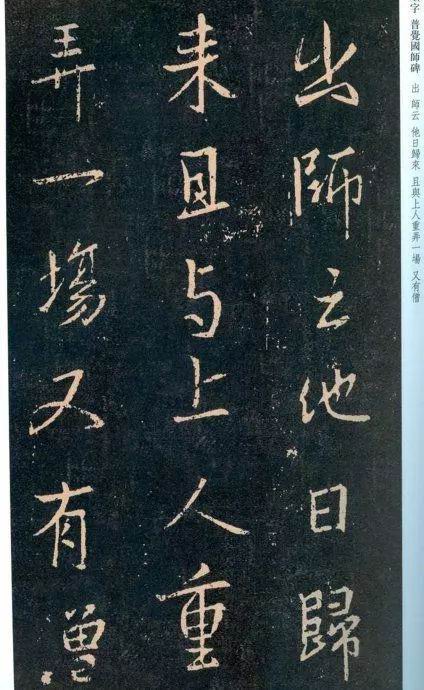 出師云他日歸
来且与上人重
弄一場又有僧
字 普覺國師碑 出 師云 他日歸來 且與上人重弄一場 又有僧